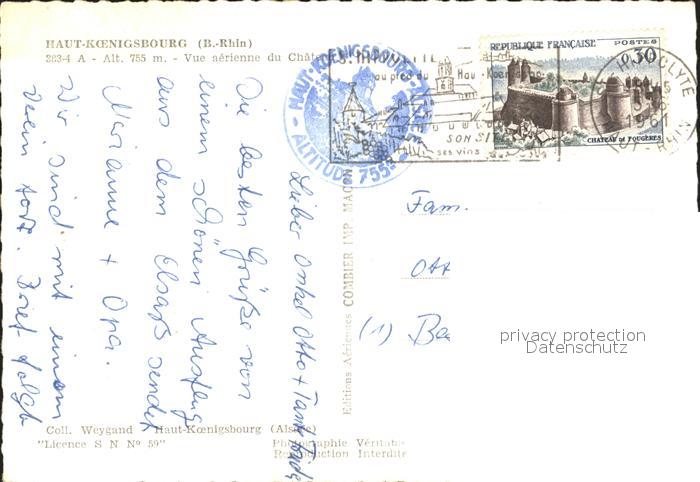 HAUT-KŒNIGSBOURG (B.-Rhin)
383-4 A - Alt. 755 m. - Vue aérienne du Chât
HAUT-KOENIGSBOURG
ALTITUDE 755
ST HIPPOLYTE
au pied du Haut-Koenigsbourg
SON SITE
ses vins
RÉPUBLIQUE FRANÇAISE
POSTES
0,30
CHATEAU DE FOUGÈRES
1961
HT-RHIN
Lieber Onkel Otto + Tante
Die besten Grüße von
einem schönen Ausflug
aus dem Elsaß sendet
Marianne + Opa.
Wir sind mit einem
Verein fort. Brief folgt
Editions Aériennes COMBIER IMP. MACON
Fam.
Ott
(1) Be
privacy protection
Datenschutz
Coll. Weygand Haut-Kœnigsbourg (Alsace)
"Licence S N N° 59"
Photographie Véritable
Reproduction Interdite